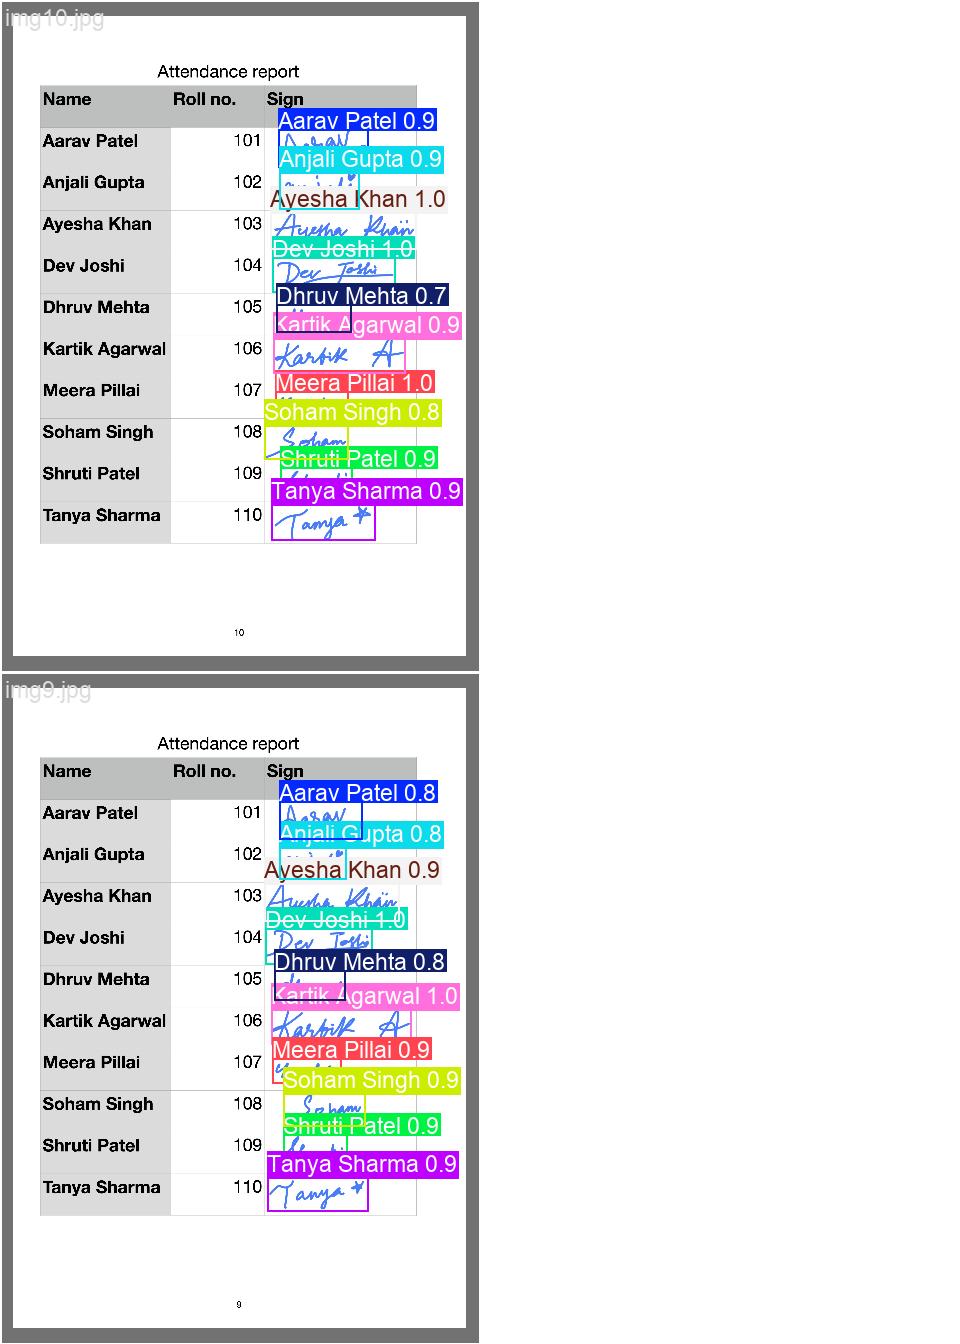 img10.jpg
Attendance report
Name Roll no. Sign
Aarav Patel 0.9
Aarav Patel 101 Aarav
Anjali Gupta 0.9
Anjali Gupta 102
Ayesha Khan 1.0
Ayesha Khan 103 Ayesha Khan
Dev Joshi 1.0
Dev Joshi 104 Dev Joshi
Dhruv Mehta 0.7
Dhruv Mehta 105
Kartik Agarwal 0.9
Kartik Agarwal 106 Kartik A
Meera Pillai 1.0
Meera Pillai 107
Soham Singh 0.8
Soham Singh 108 Soham
Shruti Patel 0.9
Shruti Patel 109
Tanya Sharma 0.9
Tanya Sharma 110 Tanya
10
img9.jpg
Attendance report
Name Roll no. Sign
Aarav Patel 0.8
Aarav Patel 101 Aarav
Anjali Gupta 0.8
Anjali Gupta 102
Ayesha Khan 0.9
Ayesha Khan 103 Ayesha Khan
Dev Joshi 1.0
Dev Joshi 104 Dev Joshi
Dhruv Mehta 0.8
Dhruv Mehta 105
Kartik Agarwal 1.0
Kartik Agarwal 106 Kartik A
Meera Pillai 0.9
Meera Pillai 107
Soham Singh 0.9
Soham Singh 108 Soham
Shruti Patel 0.9
Shruti Patel 109
Tanya Sharma 0.9
Tanya Sharma 110 Tanya
9